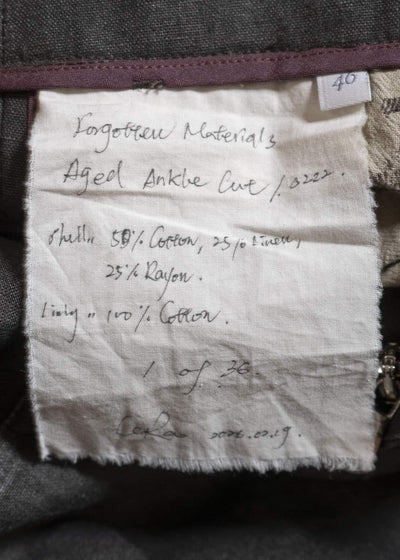 46
Forgotten Materials
Aged Ankle Cut / 0222.
Shell: 50% Cotton, 25% Linen,
25% Rayon.
Lining: 100% Cotton.
1 of 36.